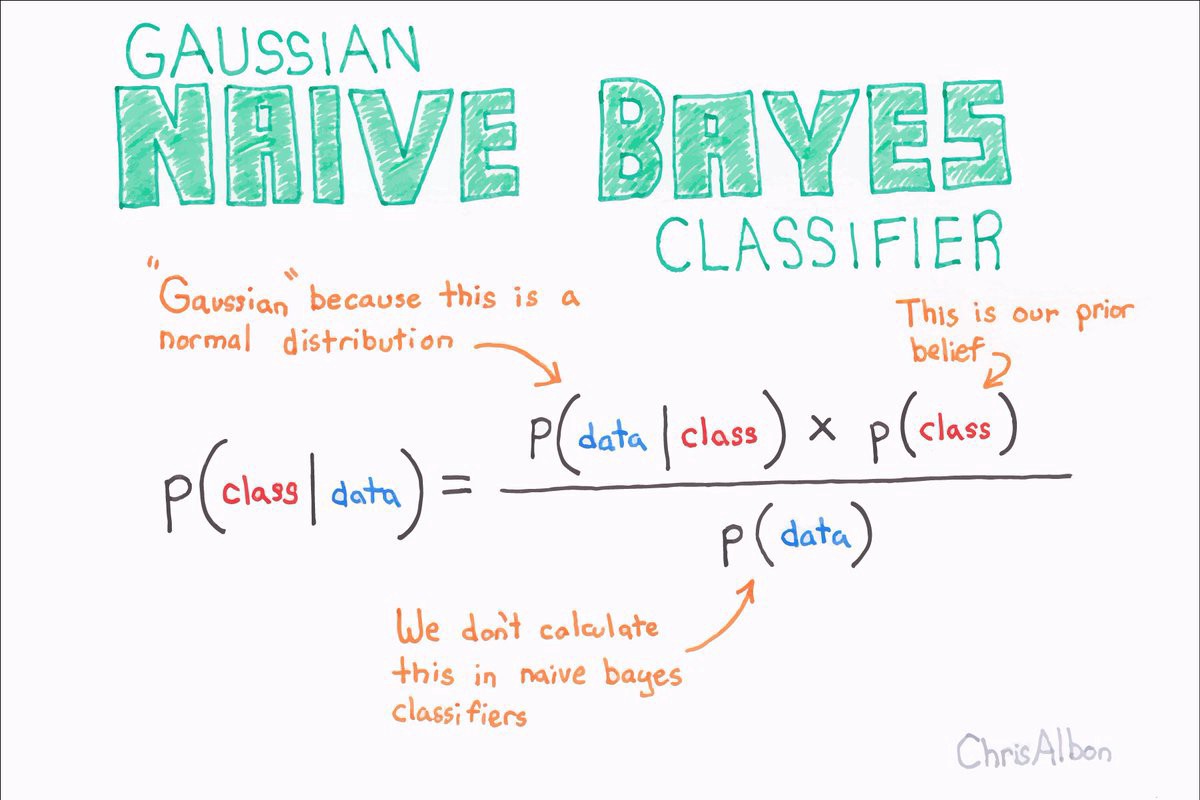 GAUSSIAN
NAIVE BAYES
CLASSIFIER
"Gaussian" because this is a
normal distribution
This is our prior
belief
P(data | class) × P(class)
P(class | data) =
P(data)
We don't calculate
this in naive bayes
classifiers
ChrisAlbon